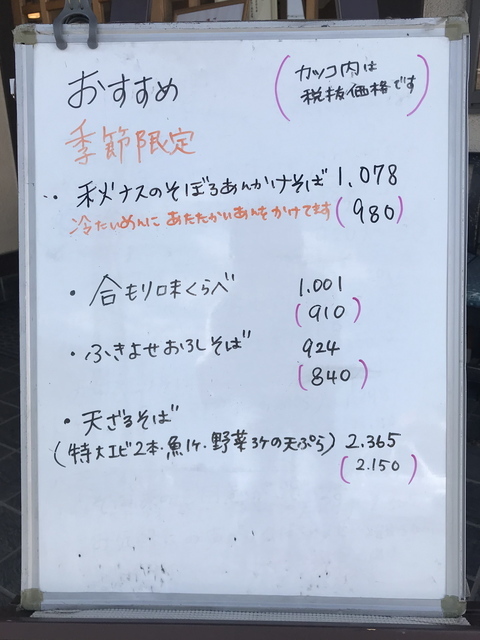 おすすめ
(カッコ内は
税抜価格です)
季節限定
・秋ナスのそぼろあんかけそば 1,078
冷たいめんに あたたかいあんをかけてます (980)
・合もり味くらべ 1.001
(910)
・ふきよせおろしそば 924
(840)
・天ざるそば
(特大エビ2本・魚1ケ・野菜3ケの天ぷら) 2.365
(2.150)